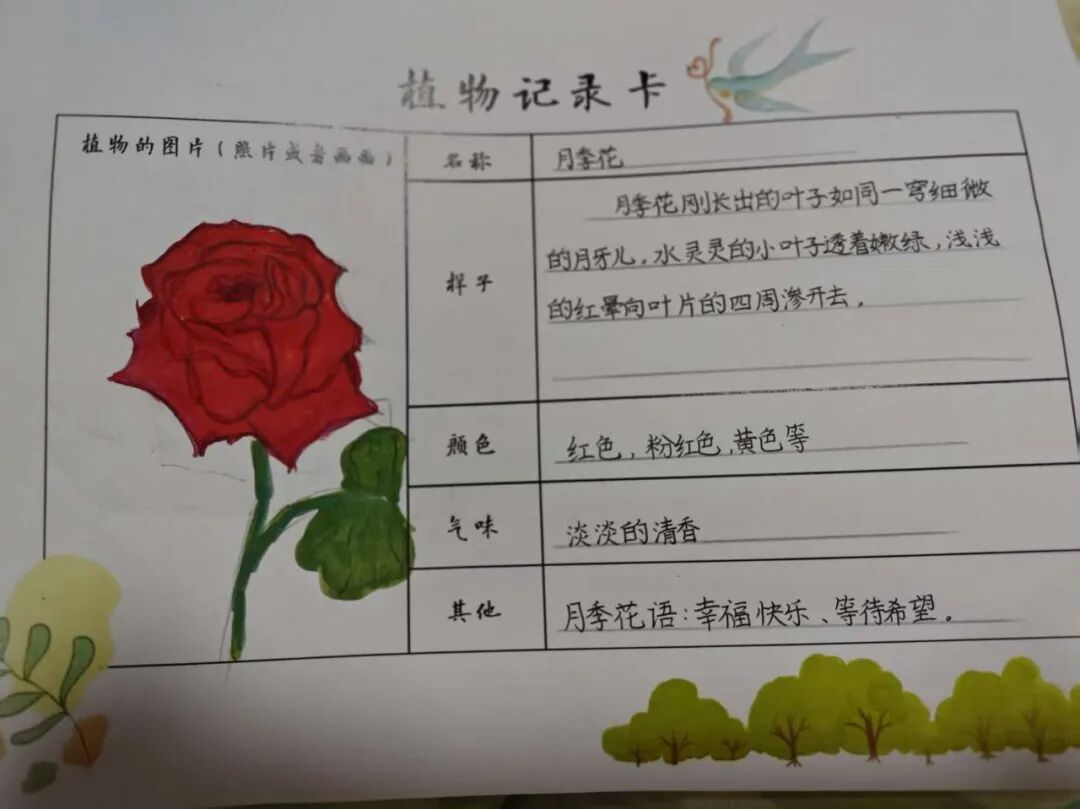 植物记录卡
植物的图片（照片或者画画）
名称
月季花
样子
月季花刚长出的叶子如同一弯细微
的月牙儿，水灵灵的小叶子透着嫩绿，浅浅
的红晕向叶片的四周渗开去。
颜色
红色，粉红色，黄色等
气味
淡淡的清香
其他
月季花语：幸福快乐、等待希望。